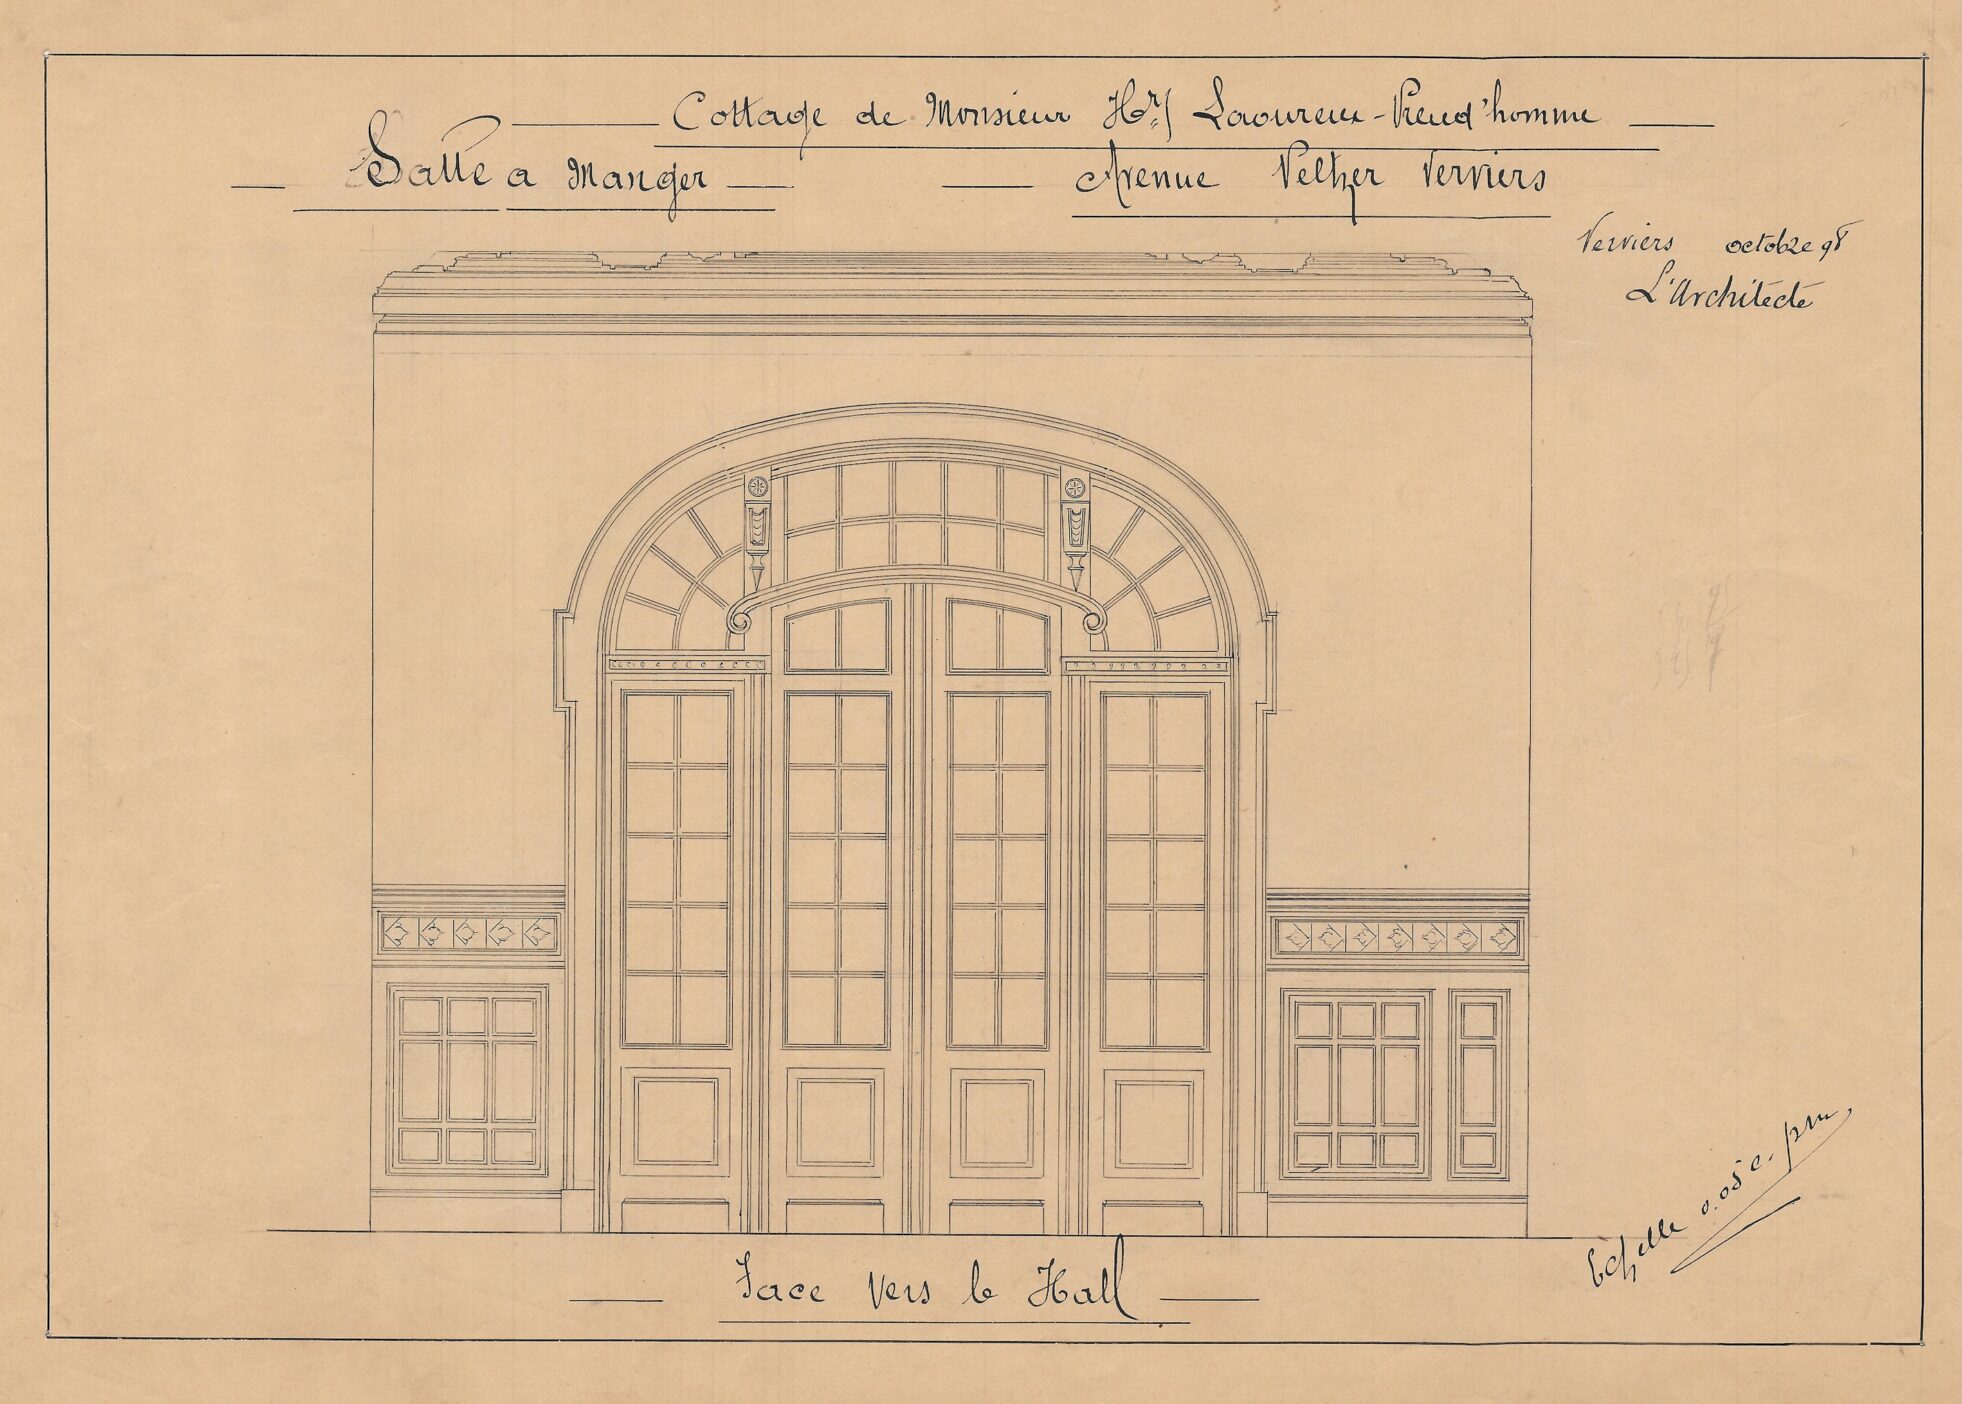 Cottage de Monsieur Hry Laoureux-Preud'homme
Salle a Manger
Avenue Peltzer Verviers
Verviers octobre 98
L'Architecte
Echelle 0.05c. pm
Face vers le Hall